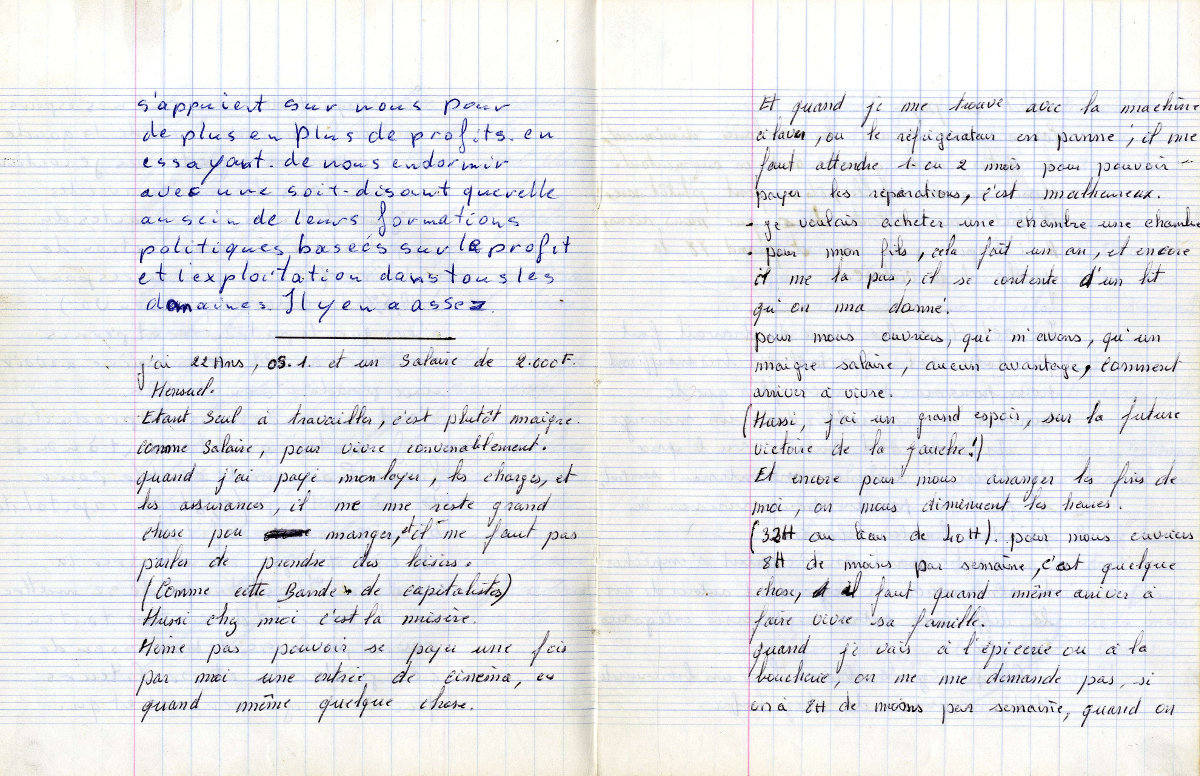 s'appuient sur nous pour
de plus en plus de profits. en
essayant. de nous endormir
avec une soit-disant querelle
au sein de leurs formations
politiques baseés sur le profit
et l'exploitation dans tous les
domaines. Il y en a assez
j'ai 22 Ans, OS.1. et un Salaire de 2.000F.
Mensuel.
Etant Seul à travailler, c'est plutôt maigre.
comme Salaire, pour vivre convenablement!
quand j'ai payé mon loyer, les charges, et
les assurances, il me me reste grand
chose pou manger, et il me faut pas
parler de prendre des loisirs.
(Comme cette Bande de capitalistes)
Aussi chez moi c'est la misère.
Même pas pouvoir se payer une fois
par moi une entrée, de cinéma, es
quand même quelque chose.
Et quand je me trouve avec la machine
à laver, ou le réfrigérateur en panne, il me
faut attendre 1 ou 2 mois pour pouvoir
payer les réparations, c'est malheureux.
- je voulais acheter une chambre une chambr
- pour mon fils, cela fait un an, et encore
il me la pas, il se contente d'un lit
qu'on ma donné.
pour nous ouvriers, qui n'avons, qu'un
maigre salaire, aucun avantage, comment
arriver à vivre.
(Aussi, j'ai un grand espoir, sur la future
victoire de la gauche!)
Et encore pour nous arranger les fins de
moi, on nous diminuent les heures.
(32H au lieu de 40H). pour nous ouvriers
8H de moins par semaine, c'est quelque
chose, il faut quand même arriver à
faire vivre sa famille.
quand je vais à l'épicerie ou à la
boucherie, on me me demande pas, si
on a 8H de moins par semaine, quand on